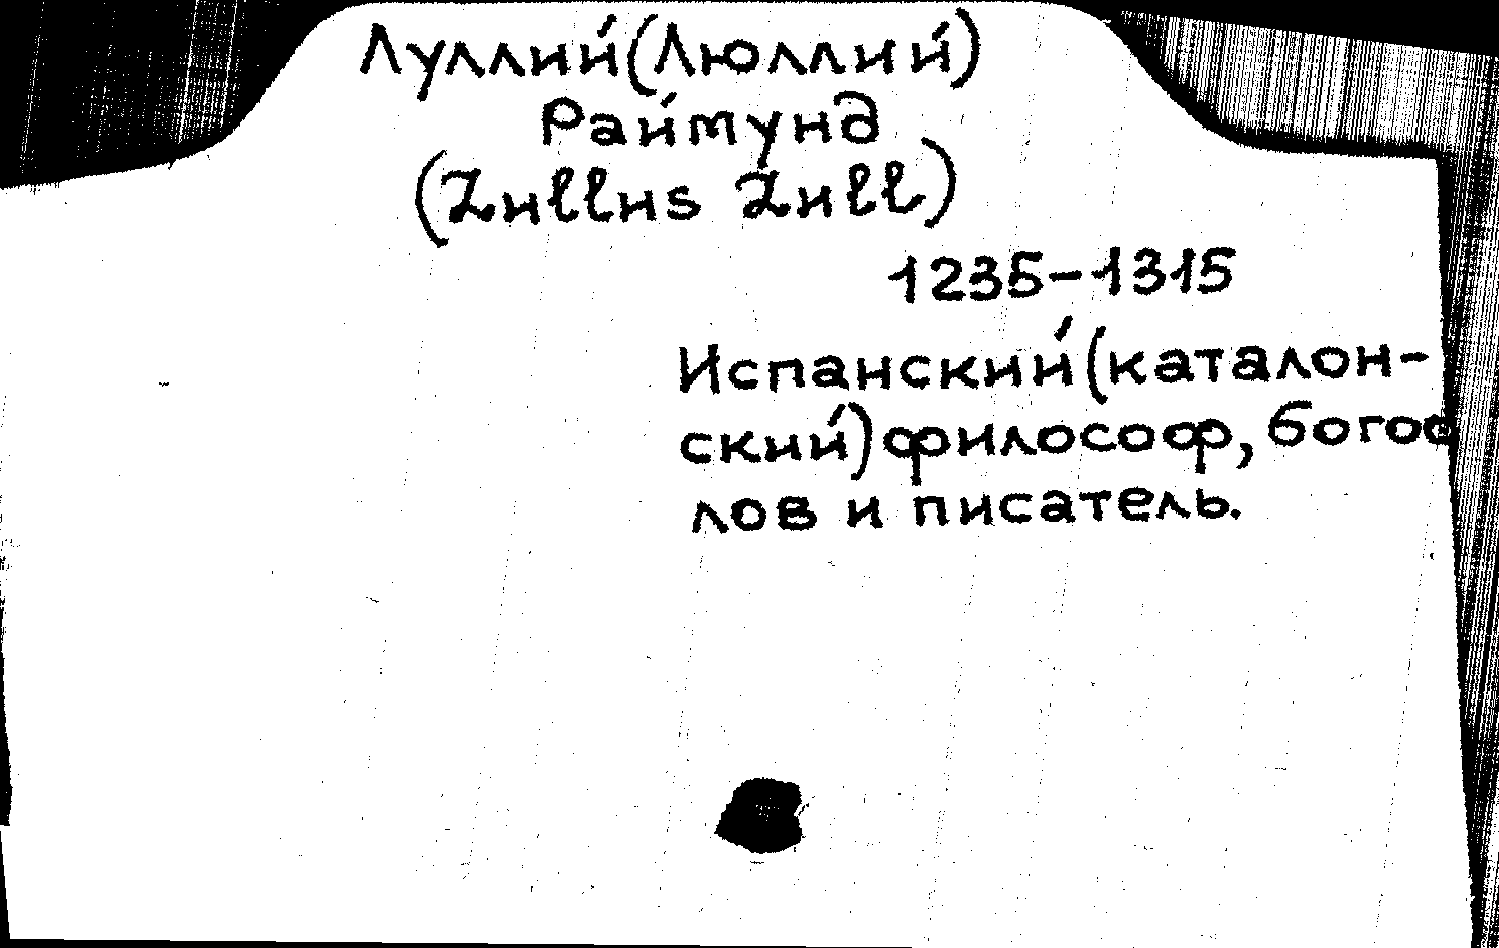 Луллий (Люллий)
Раймунд
(Lullus Lull)
1235-1315
Испанский (каталон-
ский) философ, богос
лов и писатель.